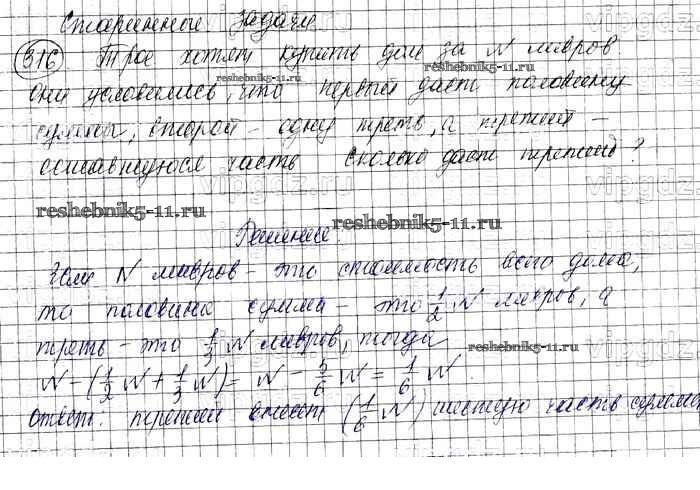 Старинные задачи
316 Трое хотят купить дом за N ливров
они условились, что первый даст половину
суммы, второй - одну треть, а третий -
оставшуюся часть Сколько даст третий?
Решение:
Если N ливров - это стоимость всего дома,
то половина суммы - это 1/2 N ливров, а
треть - это 1/3 N ливров, тогда
N - (1/2 N + 1/3 N) = N - 5/6 N = 1/6 N.
Ответ: третий внесет (1/6 N) шестую часть суммы
reshebnik5-11.ru
reshebnik5-11.ru
reshebnik5-11.ru
reshebnik5-11.ru
reshebnik5-11.ru
reshebnik5-11.ru
vipgdz.ru
vipgdz